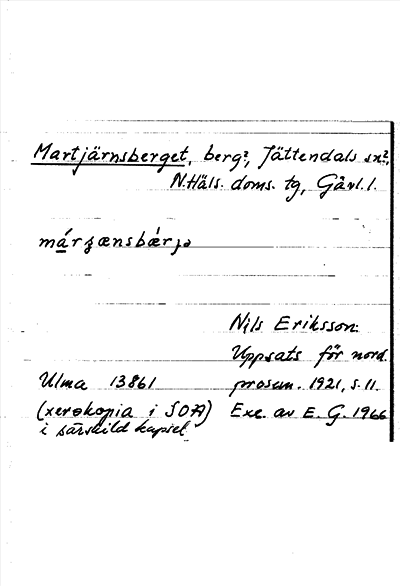 Martjärnsberget, berg?, Jättendals sn?,
N.Häls. doms. tg, Gävl. l.
Nils Eriksson:
Uppsats för nord.
Ulma 13861 prosem. 1921, s. 11.
(xerokopia i SOA) Exc. av E. G. 1966
i särskild kapsel